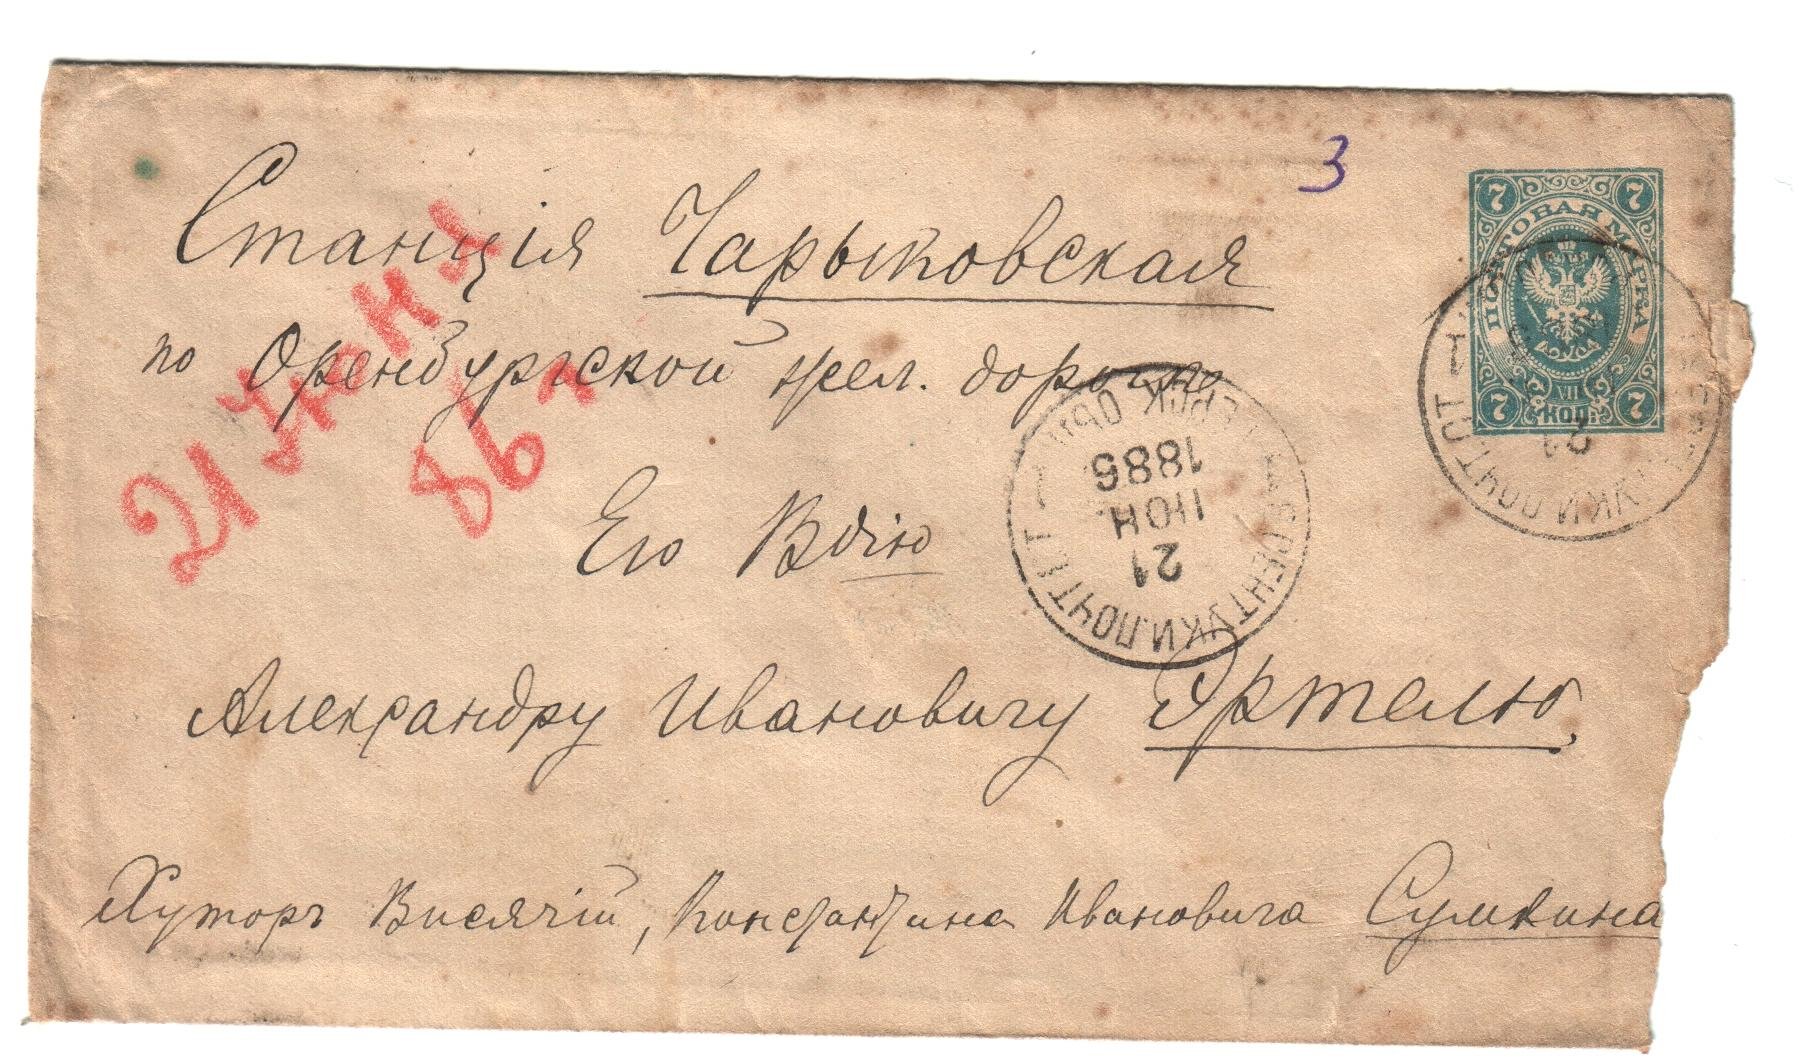 3
Станція Чарыковская
по Оренбургской жел. дороге
Его Вдію
Александру Ивановичу Эртелю
Хуторъ Висячій, Константина Ивановича Сумкина
21 Іюня
86 г
7 7
ПОЧТОВАЯ МАРКА
7 КОП. 7
ЕСЕНТУКИ ПОЧТ. ОТ
ТЕРСК. ОБЛ.
1886
ІЮН
21
21